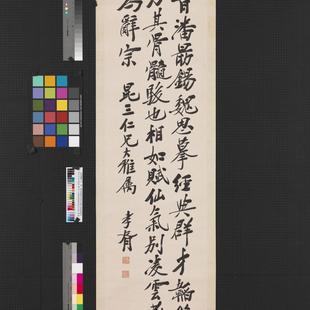 昔潘勗錫魏思摹經典群才韜
乃其骨髓駿也相如賦仙氣別凌雲蔚
為辭宗 昆三仁兄大雅屬 孝胥